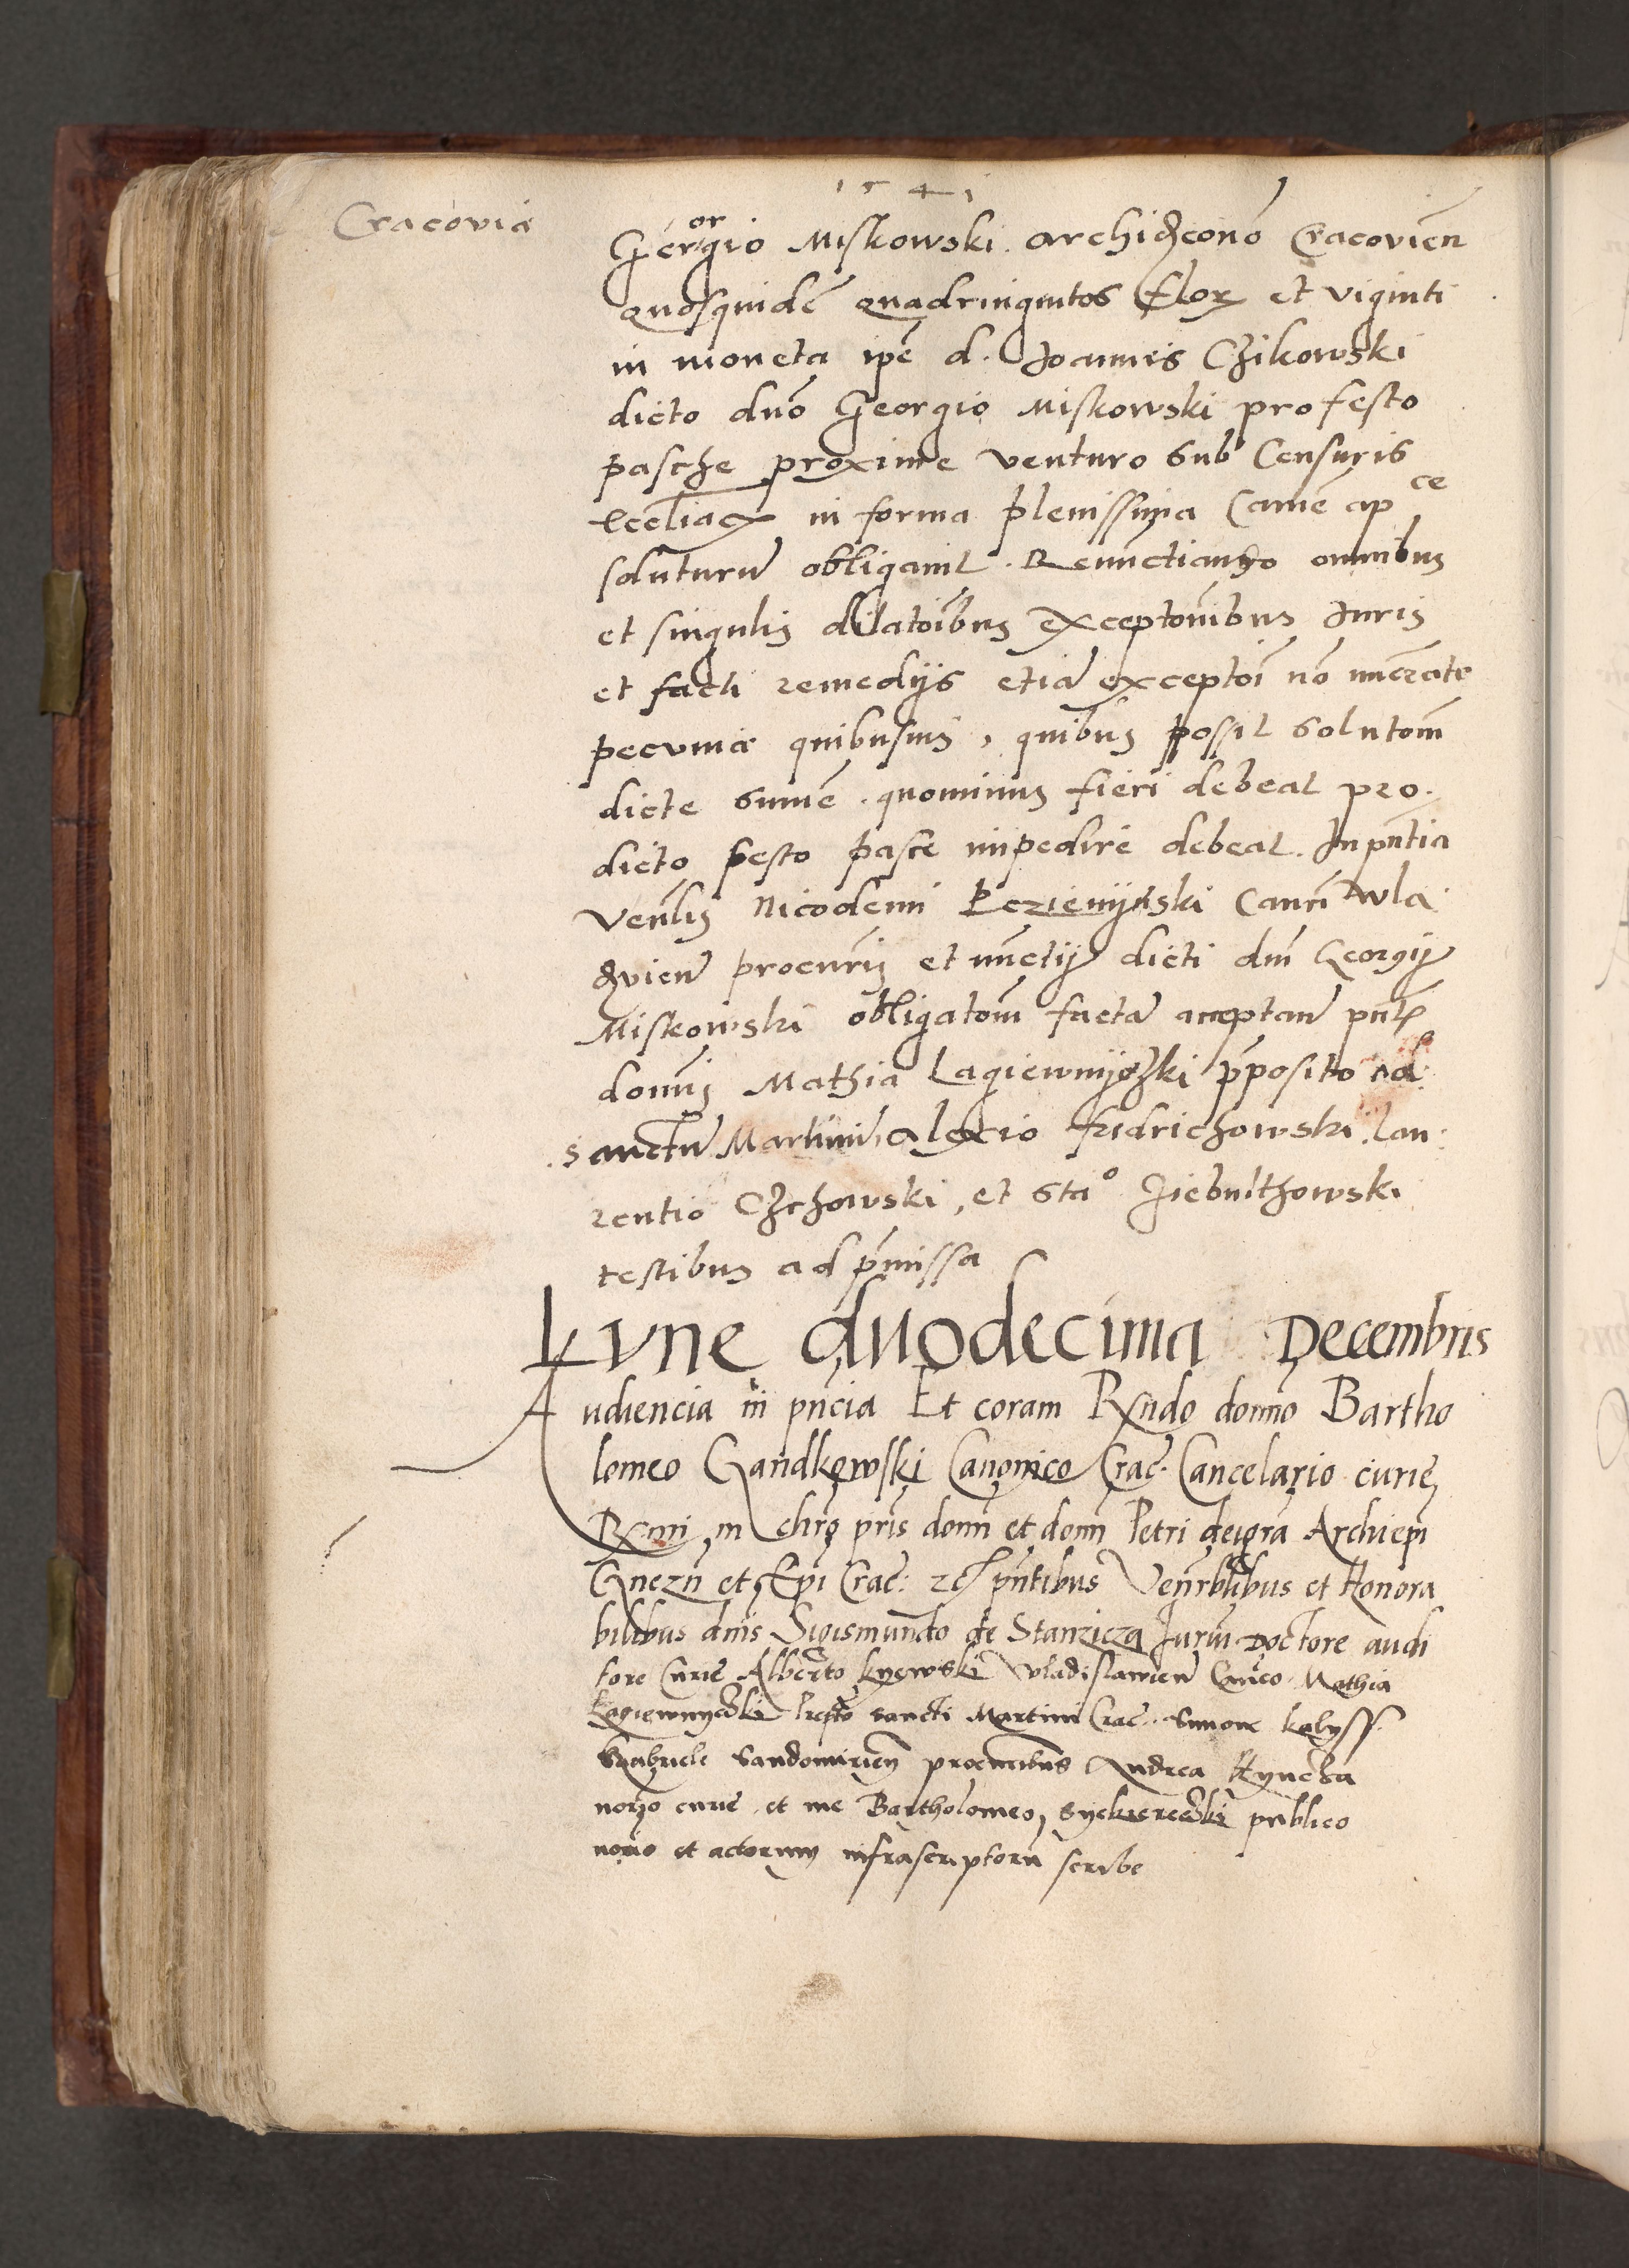 1541
Cracoviæ
Georgio Miskowski. archidconō Cracovien̄
quosquidē quadringintos flor et viginti
in moneta ipē d. Joannis Czikowski
dicto dnō Georgio Miskowski pro festo
pasche proxime venturo sub Censuris
eccl̄iac in forma plenissima Camē ap^ce
soluturū obligavit. Renunctiando omnibus
et singulis dilatoībus exceptonibus Juris
et facti remedijs etiā exceptoī nō nūerate
pecuniæ quibusuis, quibus possit solutom̄
dicte sumē. quominus fieri debeat pro.
dicto festo pasce impedire debeat. In pn̄tia
Venl̄is Nicodemi Lezienijski Canci Wla
dvien̄ procuris et nūctij dicti dn̄i Georgij
Miskowski obligatom̄ factā acceptan̄ pn̄t
domis Mathia Lagiewnijczki p̄posito ad
sanctū Martinū, alexio fridrichowski. lau:
rentio Czchowski, et sta^o Ziebulthowski
testibus ad p̄missa
Lvne duodecima Decembris
Audiencia in pn̄cia Et coram Rx̄ndo domno Bartho
lomeo Gandkowski Canonico Crac. Cancelario curie
Rxmi in chro pris domī et domī Petri dei gra Archiepi
Gnezn̄ et Epi Crac: zc pn̄tibus Venr̄blibus et Honora
bilibus dnīs Sigismundo de Stanzicza Juriū Doctore audi
tore Curie Alberto kyewski Vladislavien̄ Canco. Mathia
Lagiewnyczki Prepto sancti Martini Crac. Simone kalyss
Gabriele Sandomirien̄ procurībus Andrea Hyncza
norio curie. et me Bartholomeo, Syekiereczki publico
norio et actorum infrascriptorū scribe